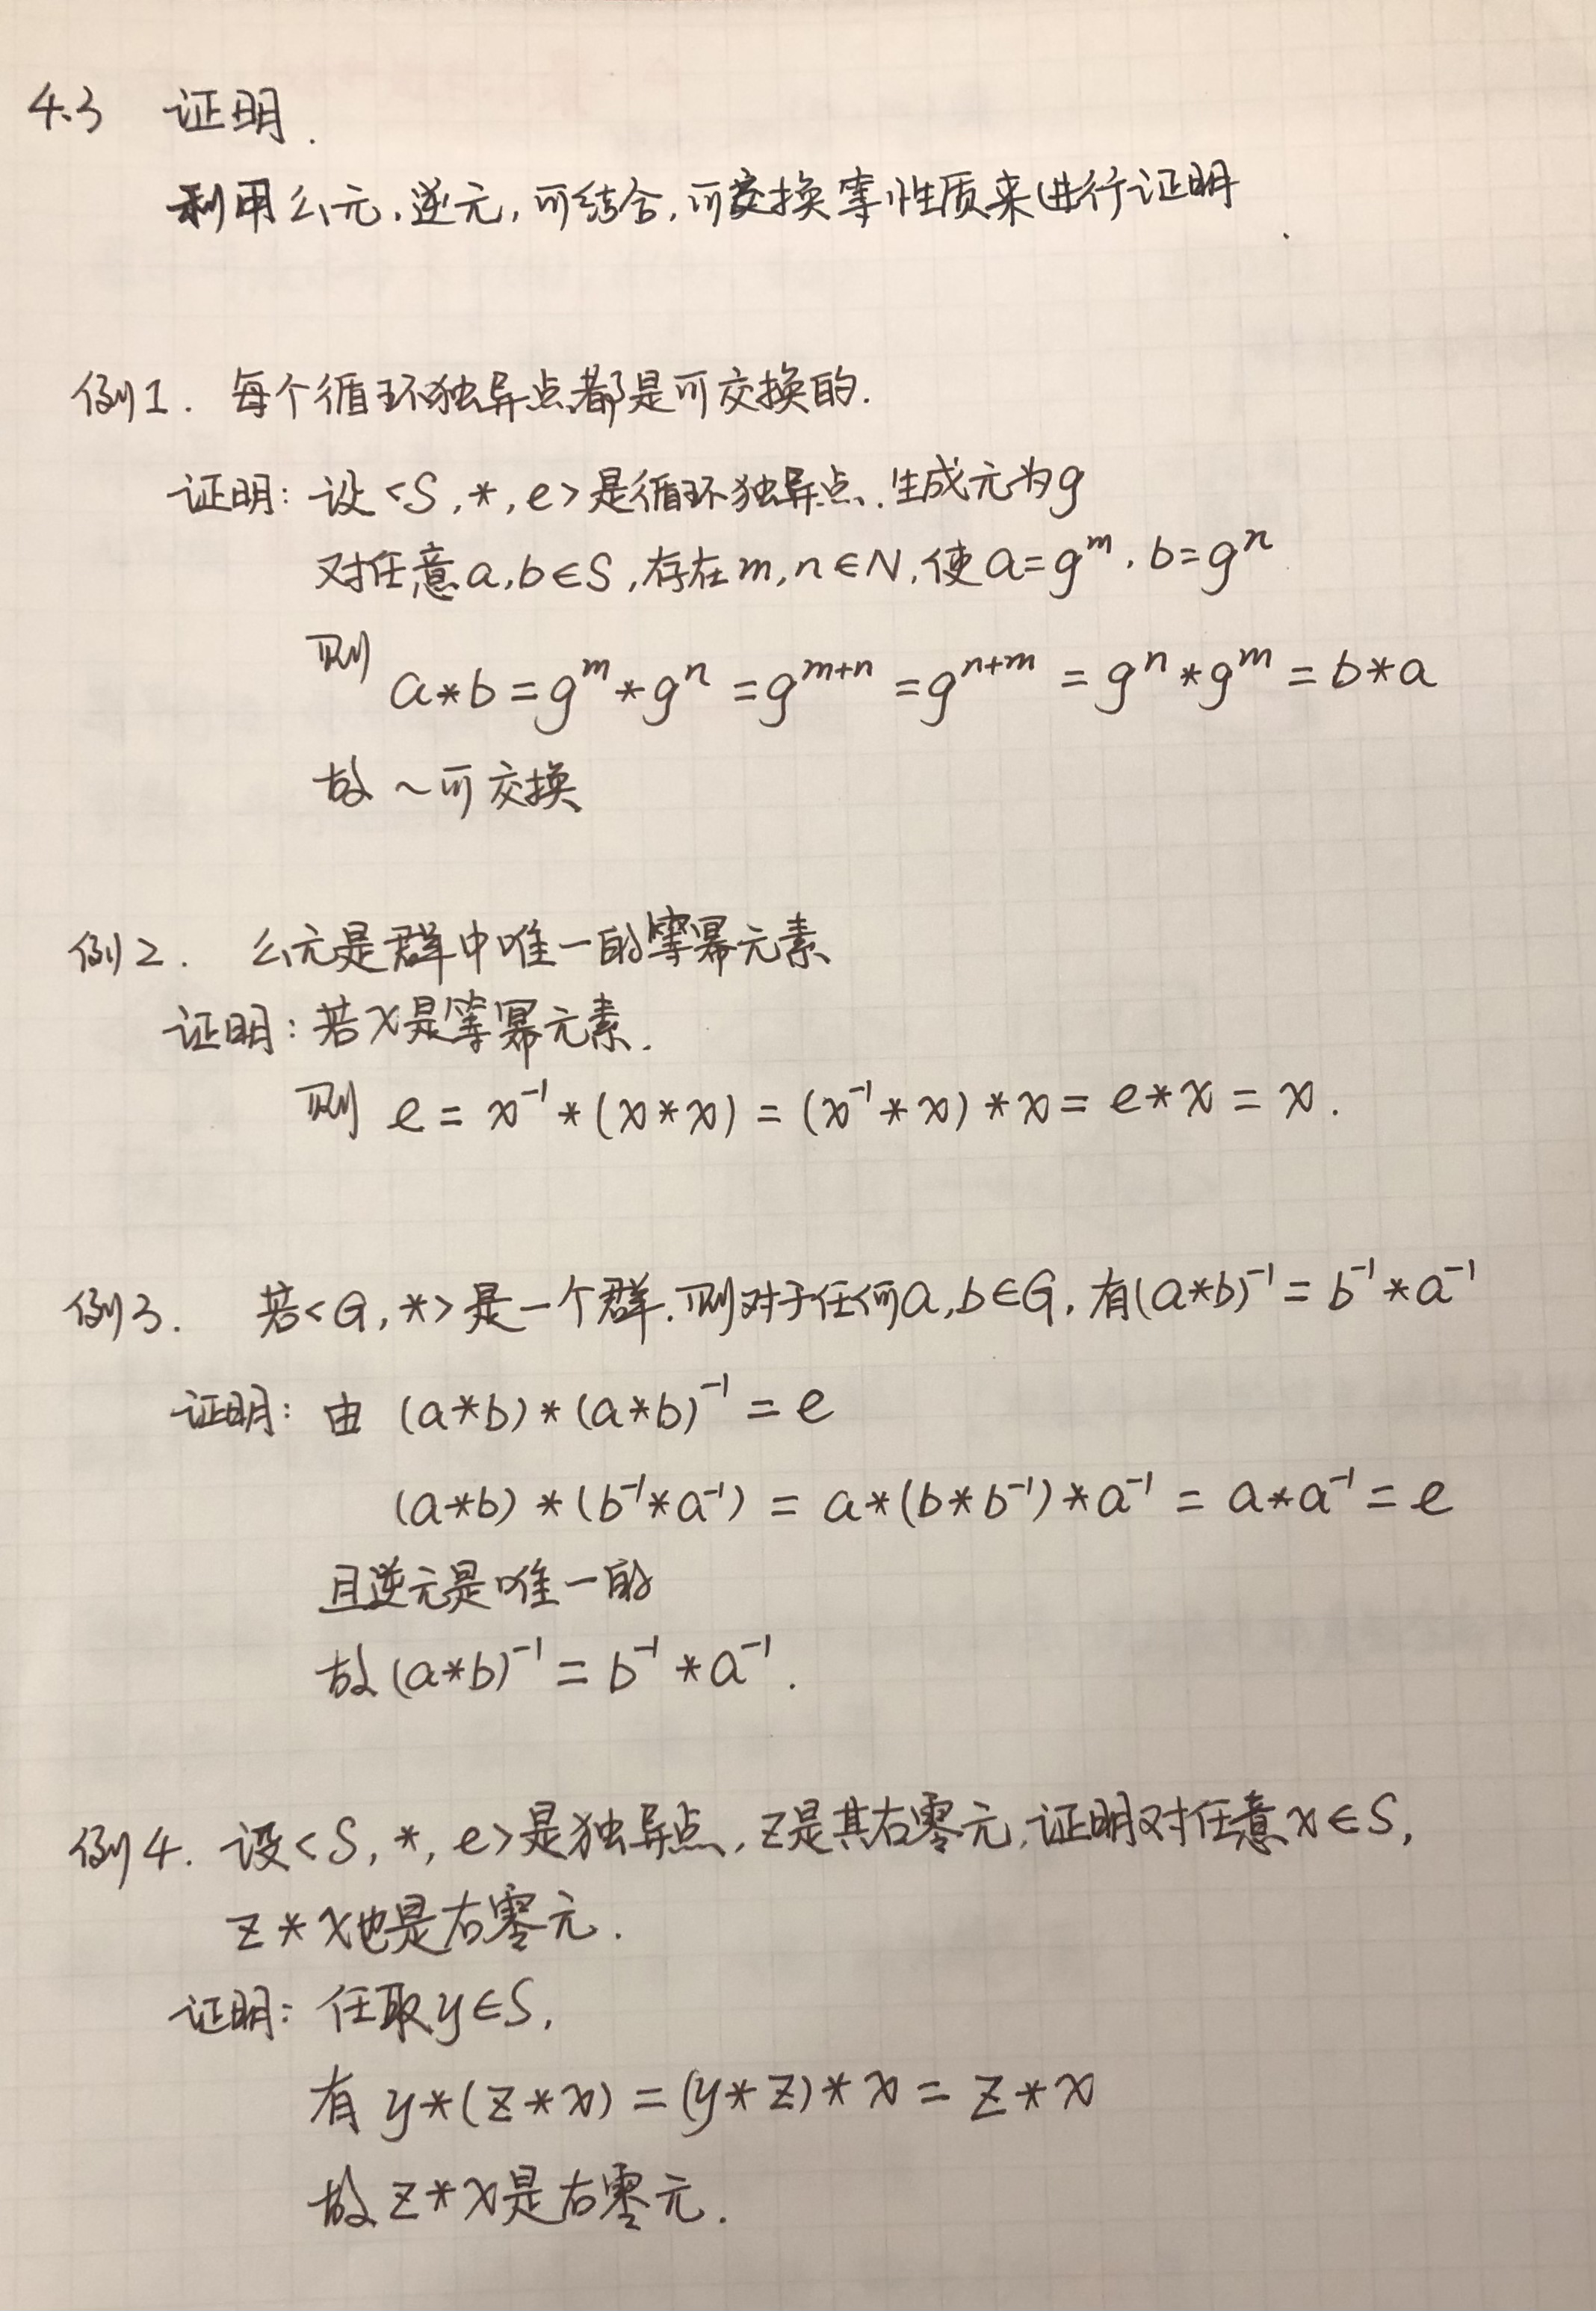 4.3 证明.
利用么元,逆元,可结合,可交换等性质来进行证明.
例1. 每个循环独异点都是可交换的.
证明: 设<S,*,e>是循环独异点,生成元为g
对任意a,b∈S,存在m,n∈N,使a=g^m,b=g^n
则 a*b=g^m*g^n=g^{m+n}=g^{n+m}=g^n*g^m=b*a
故~可交换
例2. 么元是群中唯一的等幂元素
证明: 若x是等幂元素.
则 e=x^{-1}*(x*x)=(x^{-1}*x)*x=e*x=x.
例3. 若<G,*>是一个群,则对于任何a,b∈G,有(a*b)^{-1}=b^{-1}*a^{-1}
证明: 由 (a*b)*(a*b)^{-1}=e
(a*b)*(b^{-1}*a^{-1})=a*(b*b^{-1})*a^{-1}=a*a^{-1}=e
且逆元是唯一的
故(a*b)^{-1}=b^{-1}*a^{-1}.
例4. 设<S,*,e>是独异点,z是其右零元,证明对任意x∈S,
z*x也是右零元.
证明: 任取y∈S,
有 y*(z*x)=(y*z)*x=z*x
故z*x是右零元.